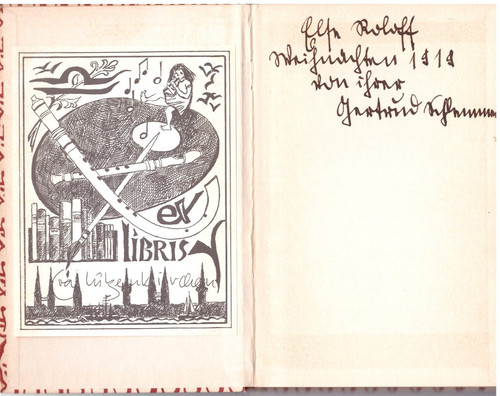 ex
LIBRIS
Else Roloff
Weihnachten 1919
von ihrer
Gertrud